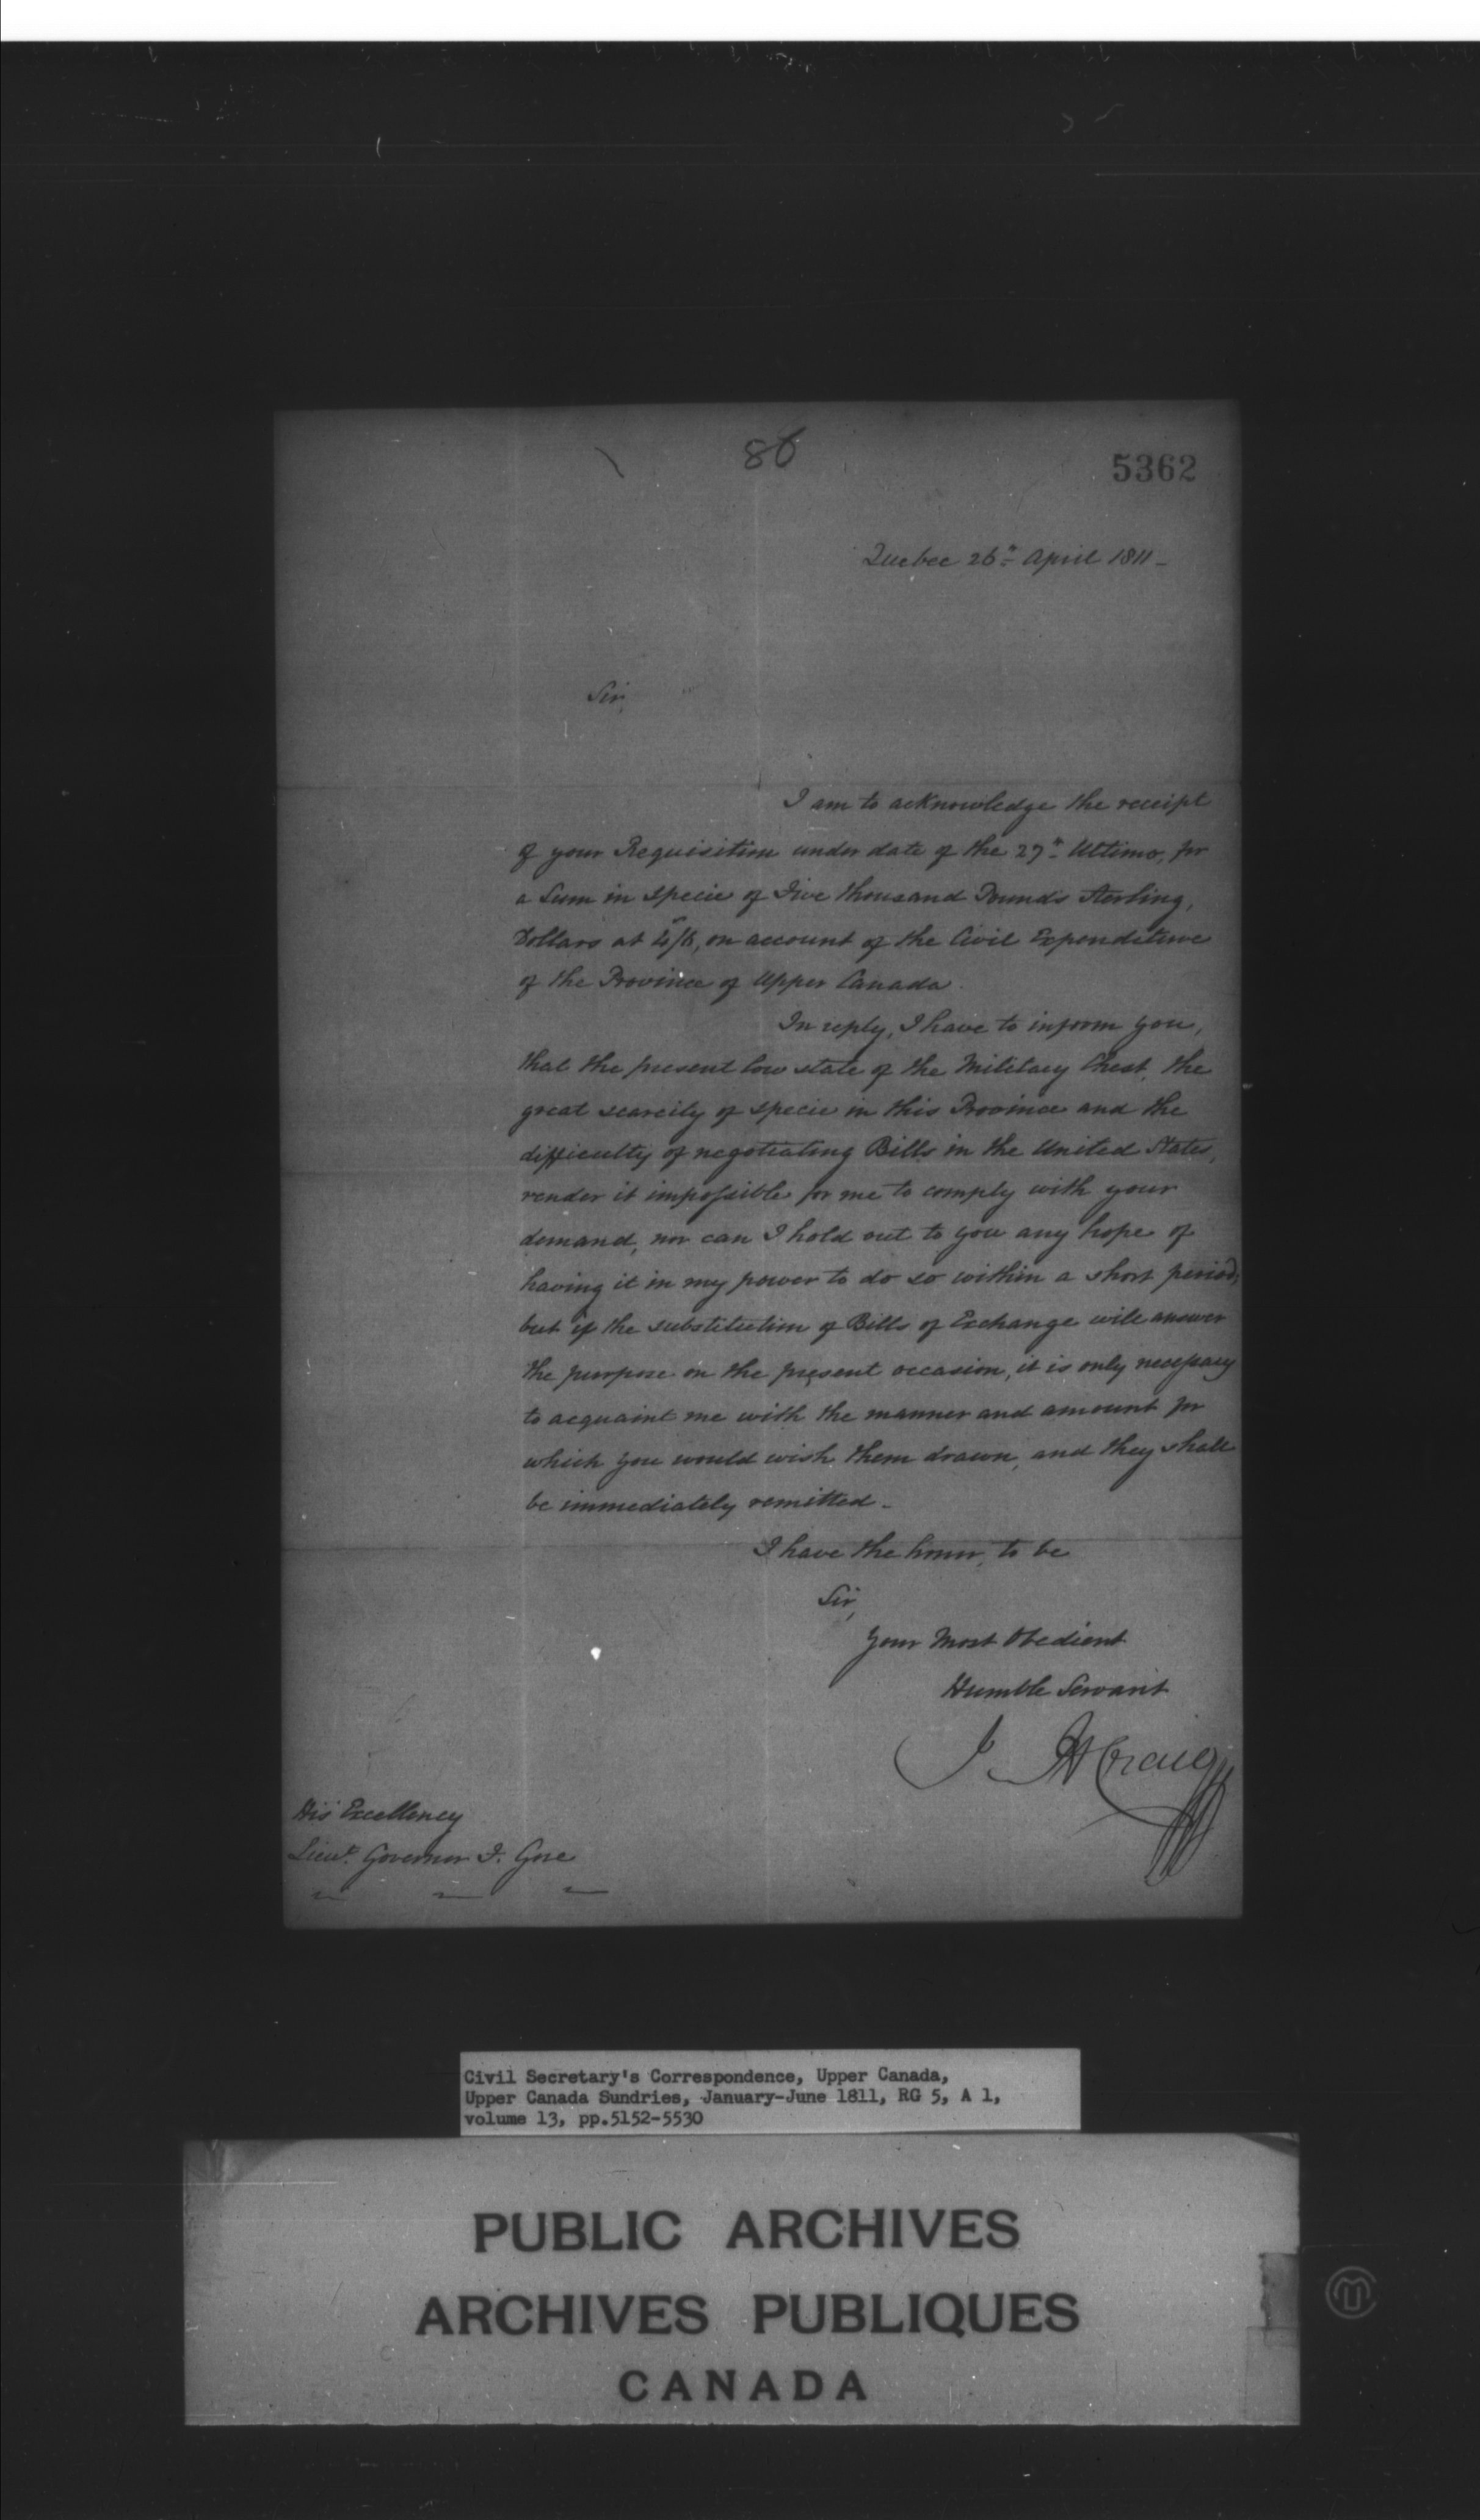 86
5362
Quebec 26th April 1811 –
Sir,
I am to acknowledge the receipt
of your Requisition under date of the 27th Ultimo, for
a Sum in specie of Five thousand Pounds Sterling,
Dollars at 4/6, on account of the Civil Expenditure
of the Province of Upper Canada.
In reply, I have to inform you,
that the present low state of the Military Chest, the
great scarcity of specie in this Province and the
difficulty of negotiating Bills in the United States,
render it impossible for me to comply with your
demand, nor can I hold out to you any hope of
having it in my power to do so within a short period;
but if the substitution of Bills of Exchange will answer
the purpose on the present occasion, it is only necessary
to acquaint me with the manner and amount for
which you would wish them drawn, and they shall
be immediately remitted –
I have the honor, to be
Sir,
Your Most Obedient
Humble Servant
J H Craig
His Excellency
Lieut. Governor F. Gore
Civil Secretary's Correspondence, Upper Canada,
Upper Canada Sundries, January-June 1811, RG 5, A 1,
volume 13, pp.5152-5530
PUBLIC ARCHIVES
ARCHIVES PUBLIQUES
CANADA